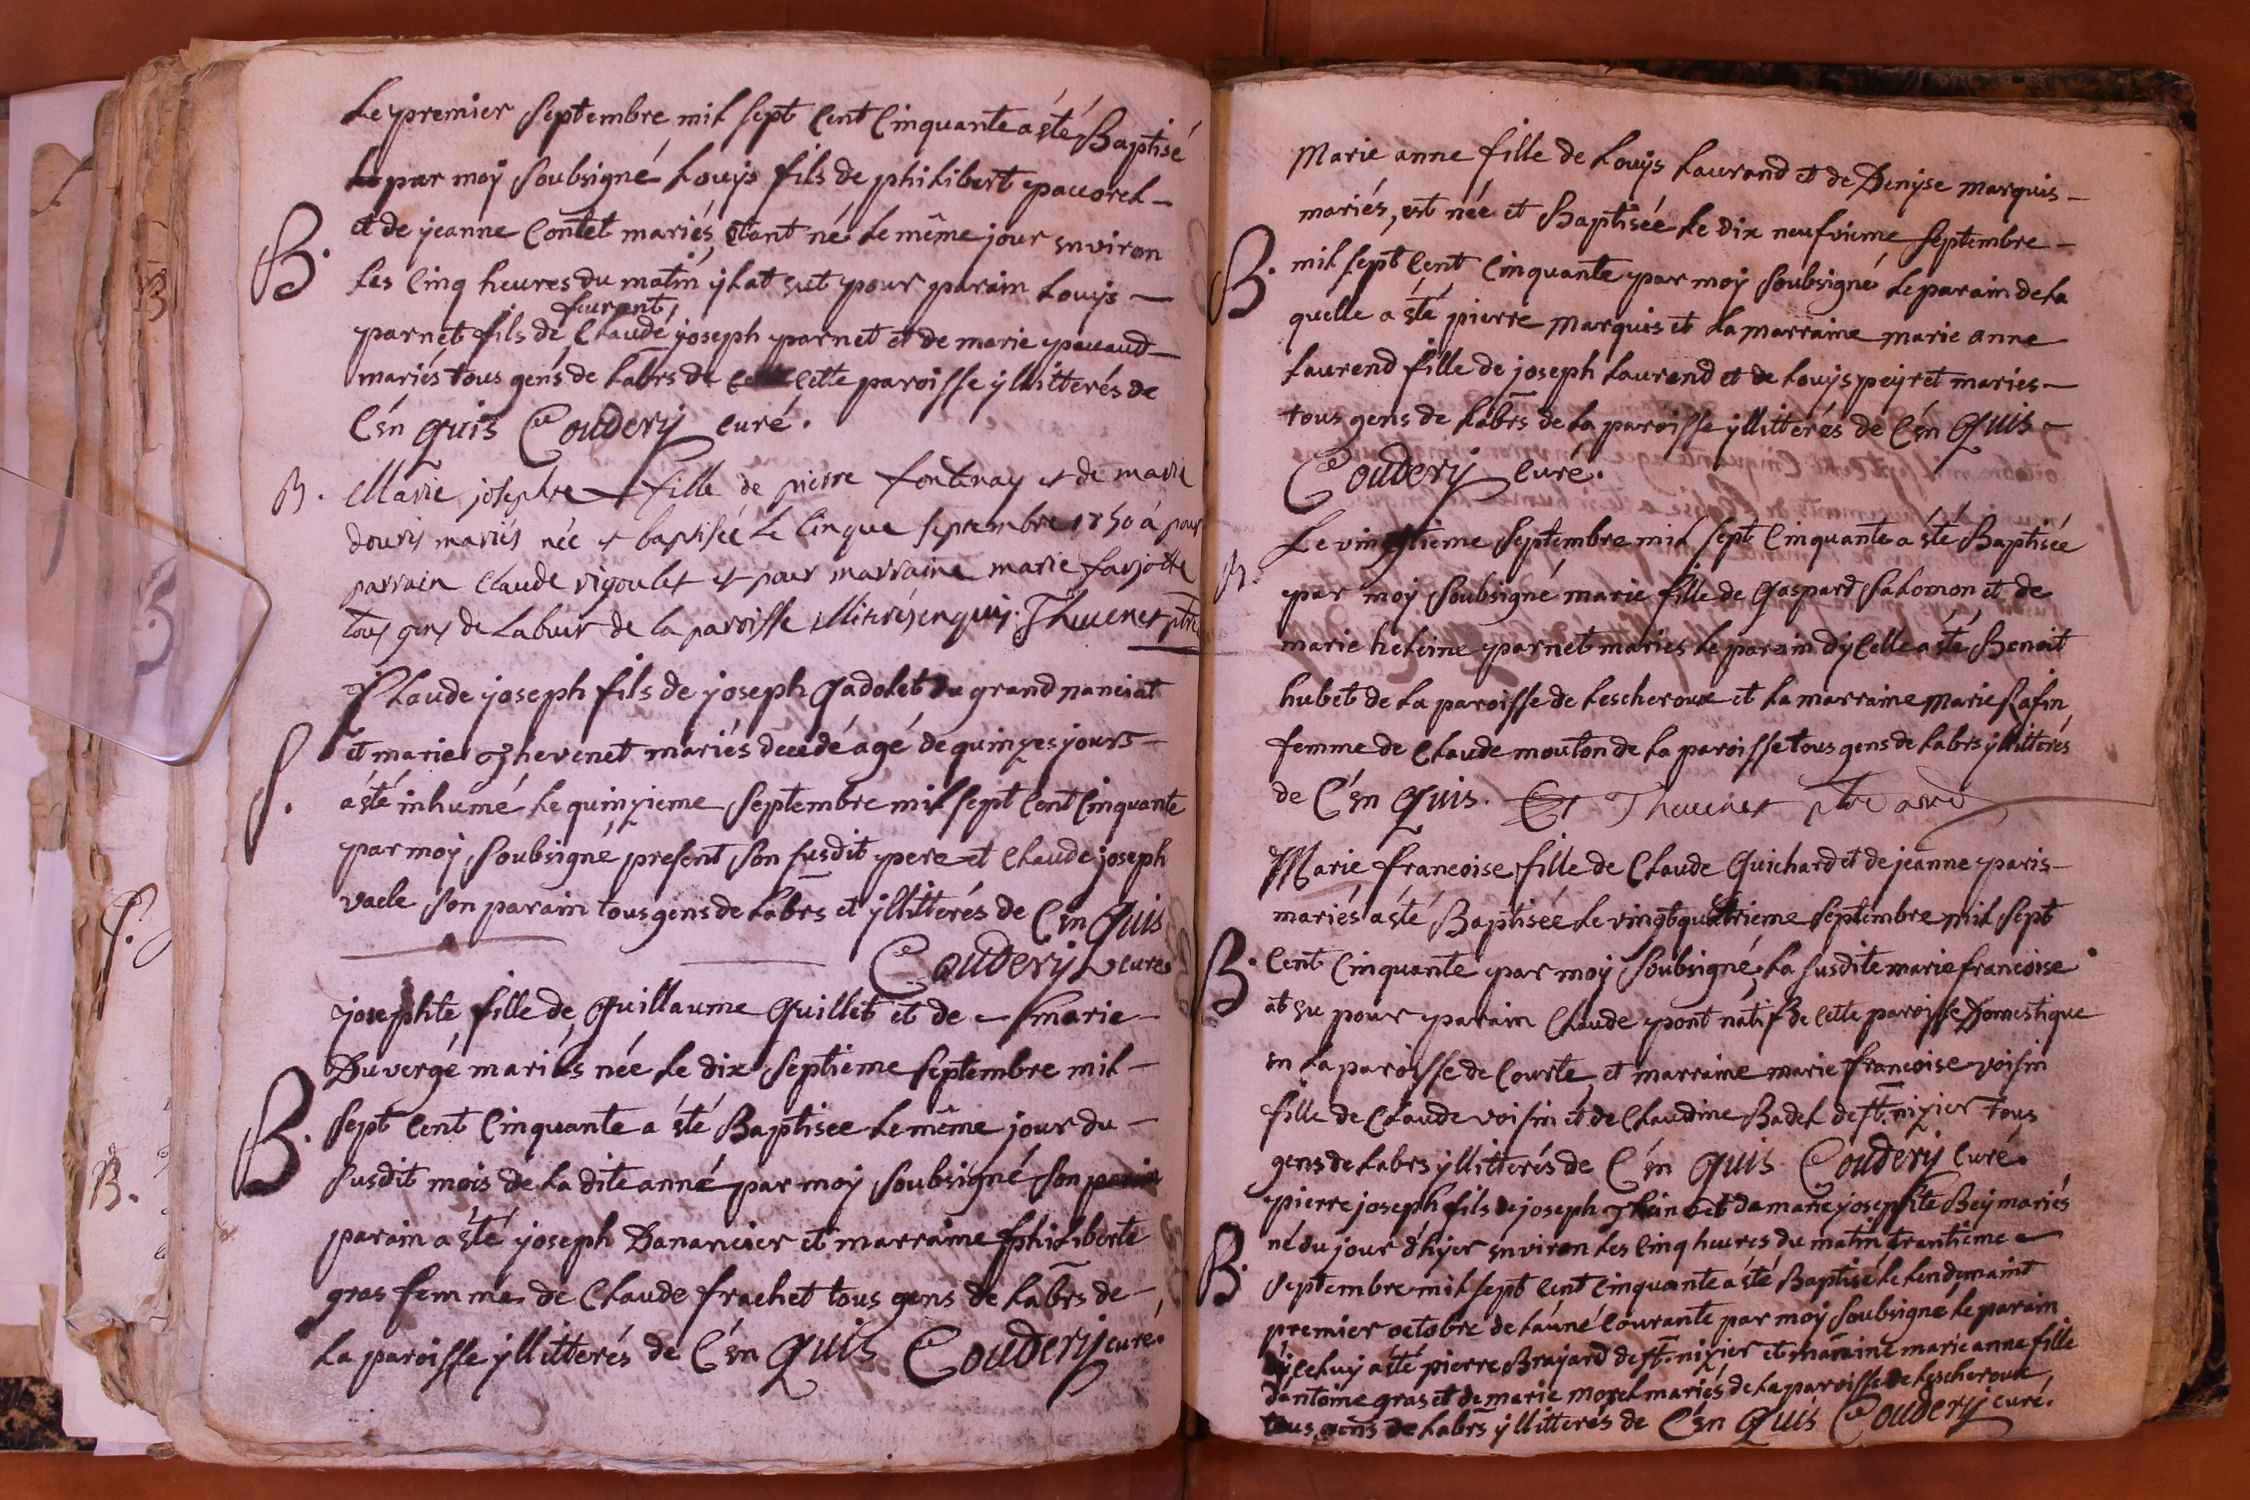 Le premier septembre mil sept cent cinquante a été Baptisé
par moy soubsigné Louys fils de philibert pauorel
B. et de jeanne Contet mariés, étant né le même jour environ
les cinq heures du matin ylat eut pour parain Louys
Laurent
parnet fils de Claude joseph parnet et de marie pauaud
mariés tous gens de labrs de cette paroisse yllitterés de
C'en quis Coudery curé.
B. Marie josephte fille de pierre fontenay et de marie
douris mariés née et baptisée le cinque septembre 1750 à pour
parrain Claude rigoulet et pour marraine marie farjotte
tous gens de Labeur de la paroisse illiterés enquis. Theuenet ptre
Claude joseph fils de joseph Gadolet du grand nanciat
S. et marie Thevenet mariés decedé agé de quinzes jours
a été inhumé le quinzieme septembre mil sept cent cinquante
par moy soubsigné present son susdit pere et Claude joseph
vacle son parain tous gens de labrs et yllitterés de C'en Quis
Coudery curé
josephte fille de Guillaume Guillet et de marie
Duvergé mariés née le dix septieme septembre mil
B. sept cent cinquante a été Baptisee le même jour du
susdit mois de la dite anné par moy soubsigné son
parain a été joseph Danancier et marraine philiberte
gras femme de Claude frachet tous gens de labrs de
la paroisse yllitterés de C'en Quis Coudery curé.
Marie anne fille de Louys Laurand et de Denyse marquis
mariés, est née et Baptisée le dix neufvieme septembre
B. mil sept cent cinquante par moy soubsigné le parain de la
quelle a été pierre marquis et la marraine marie anne
Laurend fille de joseph Laurend et de Louys peyret maries
tous gens de labrs de la paroisse yllitterés de C'en Quis
Coudery curé.
Le vingtieme septembre mil sept cinquante a été Baptisée
B. par moy soubsigné marie fille de Gaspard Salomon et de
marie heleine parnet maries le parain d'ycelle a été Benoit
hubet de la paroisse de Lescheroux et la marraine Marie Rafin
femme de Claude mouton de la paroisse tous gens de labrs yllitterés
de C'en Quis. Et Theuenet ptre
Marie francoise fille de Claude Guichard et de jeanne paris
mariés a été Baptisée le vingt quatrieme septembre mil sept
B. cent cinquante par moy soubsigné, la susdite marie francoise
at eu pour parain Claude pont natif de cette paroisse Domestique
en la paroisse de Courte, et marraine marie francoise voisin
fille de Claude voisin et de Claudine Badel de st. nizier tous
gens de labrs yllitterés de C'en Quis Coudery Curé.
pierre joseph fils de joseph et de marie josephte Bey mariés
né du jour d'hyer environ les cinq heures du matin trentieme
B. septembre mil sept cent cinquante a été Baptisé le lendemaint
premier octobre de l'anné courante par moy soubsigné le parain
d'yceluy a été pierre Brayard de st. nizier et maraine marie anne fille
d'antoine gras et de marie morel mariés de la paroisse de Lescheroux,
tous gens de labrs yllitterés de C'en Quis Coudery curé.